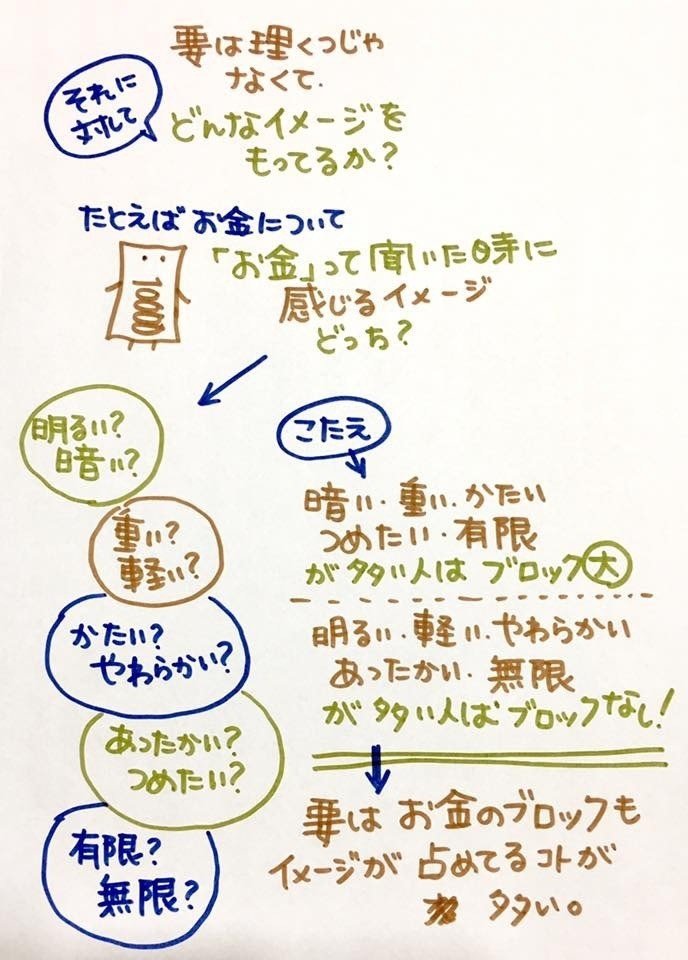 要は理くつじゃ
なくて.
それに
対して
どんなイメージを
もってるか?
たとえば お金について
「お金」って聞いた時に
感じるイメージ
どっち?
明るい?
暗い?
重い?
軽い?
かたい?
やわらかい?
あったかい?
つめたい?
有限?
無限?
こたえ
暗い・重い・かたい
つめたい・有限
が多い人は ブロック大
明るい・軽い・やわらかい
あったかい・無限
が多い人はブロックなし!
要は お金のブロックも
イメージが 占めてるコトが
多い。